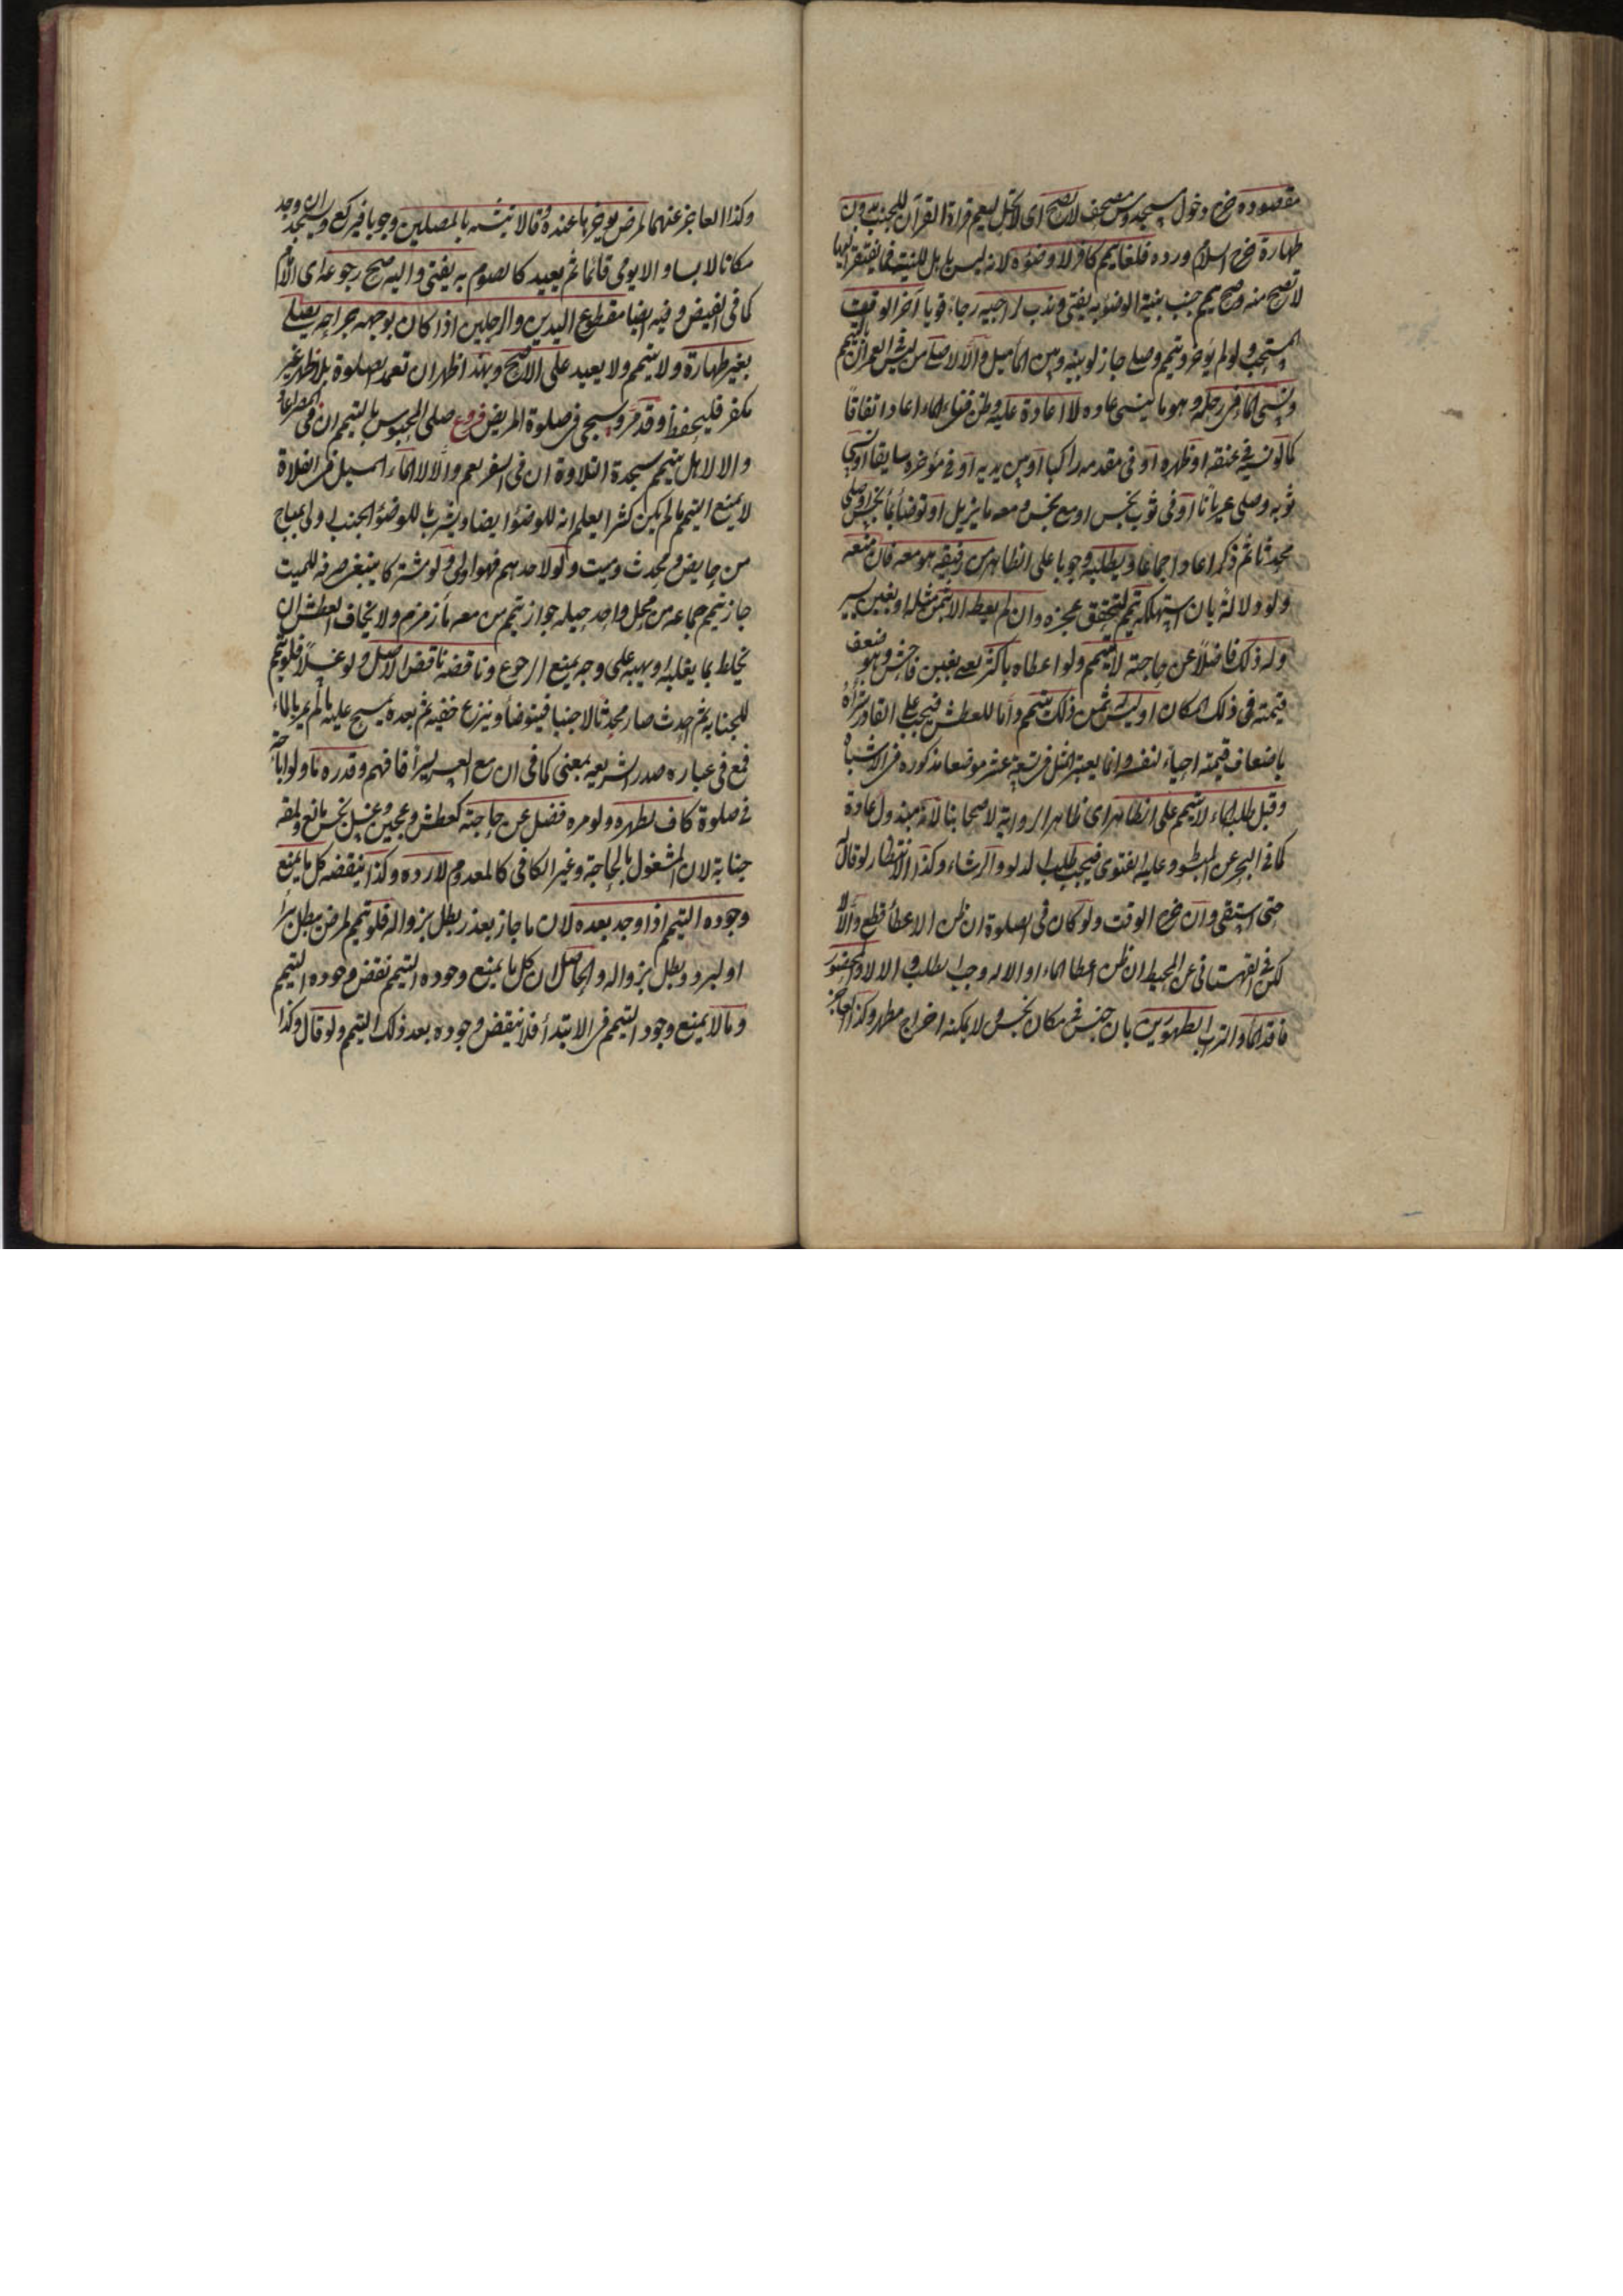 مقصودة خرج دخول مسجد ومس مصحف لا تصح اى لا تحل ليعم قراءة القرآن للجنب بدون
طهارة خرج السلام ورده فلغا تيمم كافر لا وضوءه لانه ليس باهل للنية فما يفتقر اليها
لا تصح منه وصح تيمم جنب بنية الوضوء به يفتى وندب لراجيه رجاء قويا آخر الوقت
المستحب ولو لم يؤخر وتيمم وصلى جاز لو بينه وبين الماء ميل والا لا صلى من ليس فى العمران بالتيمم
ونسى الماء فى رحله وهو مما لا ينسى عادة لا اعادة عليه ولو ظن فناء الماء اعاد اتفاقا
كما لو نسيه فى عنقه او ظهره او فى مقدمه راكبا او بين يديه او فى مؤخره سايقا او نسى
ثوبه وصلى عريانا او فى ثوب نجس او مع نجس ومعه ما يزيل او توضأ بماء نجس او صلى
محدثا ثم ذكر اعاد اجماعا ويطلبه وجوبا على الظاهر من رفيقه هو معه فان منعه
ولو دلالة بان استهلكه تيمم لتحقق عجزه وان لم يعطه الا بثمن مثله او بغبن يسير
وله ذلك فاضلا عن حاجته لا يتيمم ولو اعطاه باكثر يعنى بغبن فاحش وهو ضعف
قيمته فى ذلك المكان او ليس ثمن ذلك تيمم واما للعطش فيجب على القادر شراؤه
باضعاف قيمته احياء لنفسه وانما يعتبر المثل فى تسعة عشر موضعا مذكورة فى الاشباه
وقبل طلب الماء لا يتيمم على الظاهر اى ظاهر الرواية لاصحابنا لانه مبذول عادة
كما فى البحر عن المبسوط وعليه الفتوى فيجب طلب الدلو والرشاء وكذا الانتظار لو قال له
حتى استقى وان خرج الوقت ولو كان فى الصلوة ان ظن الاعطاء قطع والا لا
لكن فى القهستانى عن المحيط ان ظن اعطاء الماء او الالة وجب الطلب والا لا والمحصور
فاقد الماء والتراب الطهورين بان حبس فى مكان نجس ولا يمكنه اخراج مطهر وكذا العاجز
وكذا العاجز عنهما لمرض يؤخرها عنده وقالا يتشبه بالمصلين وجوبا فيركع ويسجد ان وجد
مكانا يابسا والا يومى قائما ثم يعيد كالصوم به يفتى واليه صح رجوعه اى الامام
كما فى الفيض وفيه ايضا مقطوع اليدين والرجلين اذا كان بوجهه جراحة يصلى
بغير طهارة ولا يتيمم ولا يعيد على الاصح وبهذا ظهر ان تعمد الصلوة بلا طهر غير
مكفر فليحفظ وقد مر وسيجى فى صلوة المريض فروع صلى المحبوس بالتيمم ان فى المصر اعاد
والا لا هل يتيمم لسجدة التلاوة ان فى السفر نعم والا لا الماء المسبل فى الفلاة
لا يمنع التيمم ما لم يكن كثيرا يعلم انه للوضوء ايضا ويشرب ما للوضوء الجنب اولى بمباح
من حايض ومحدث وميت ولو لاحدهم فهو اولى ولو مشتركا ينبغى صرفه للميت
جاز تيمم جماعة من محل واحد حيلة جواز تيمم من معه ماء زمزم ولا يخاف العطش ان
يخلطه بما يغلبه او يهبه على وجه يمنع الرجوع وناقضه ناقض الاصل ولو غسلا فلو تيمم
للجنابة ثم احدث صار محدثا لا جنبا فيتوضأ وينزع خفيه ثم بعده يمسح عليه ما لم يمر بالماء
فمع فى عبارة صدر الشريعة بمعنى كما فى ان مع العسر يسرا فافهم وقدرة ماء ولو اباحة
فى صلوة كاف لطهره ولو مرة فضل عن حاجته كعطش وعجين وغسل نجس مانع ولمعة
جنابة لان المشغول بالحاجة وغير الكافى كالمعدوم لا ردة وكذا ينقضه كل ما يمنع
وجوده التيمم اذا وجد بعده لان ما جاز بعذر بطل بزواله فلو تيمم لمرض بطل ببرئه
او لبرد بطل بزواله والحاصل ان كل ما يمنع وجوده التيمم نقض وجوده التيمم
وما لا يمنع وجود التيمم فى الابتداء فلا ينقض وجوده بعد ذلك التيمم ولو قال وكذا